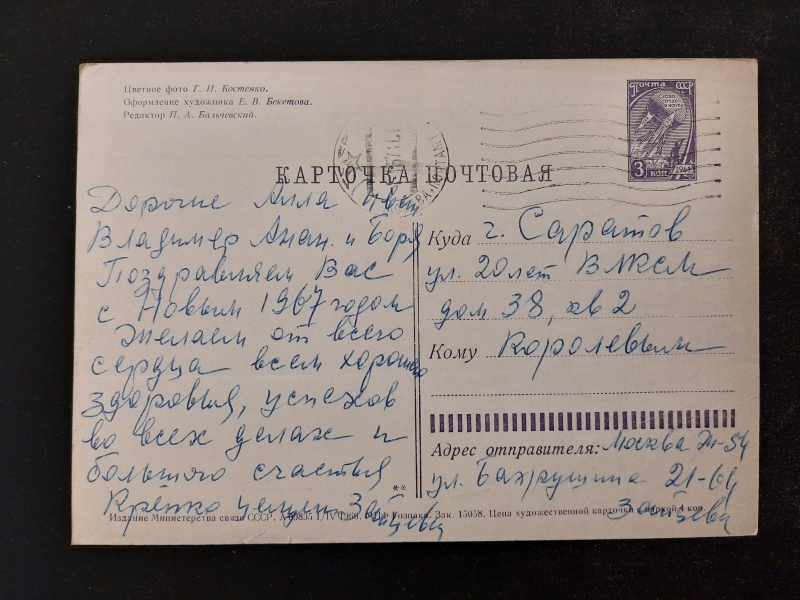 Цветное фото Г. И. Костенко.
Оформление художника Е. В. Бекетова.
Редактор П. А. Бальчевский.
ПОЧТА СССР
3 КОП.
1961
МОСКВА
КАРТОЧКА ПОЧТОВАЯ
Дорогие Алла
Владимир Анан. и Боря
Поздравляем Вас
с Новым 1967 годом
Желаем от всего
сердца всем хорошего
здоровья, успехов
во всех делах и
большого счастья
Крепко целуем Зайцевы
Куда г. Саратов
ул. 20 лет ВЛКСМ
дом 38, кв 2
Кому Королевым
Адрес отправителя: Москва М-54
ул. Бахрушина 21-64
Зайцевы
**
Издание Министерства связи СССР. 1/IV 1966. Гознака. Зак. 15058. Цена художественной карточки с маркой 4 коп.